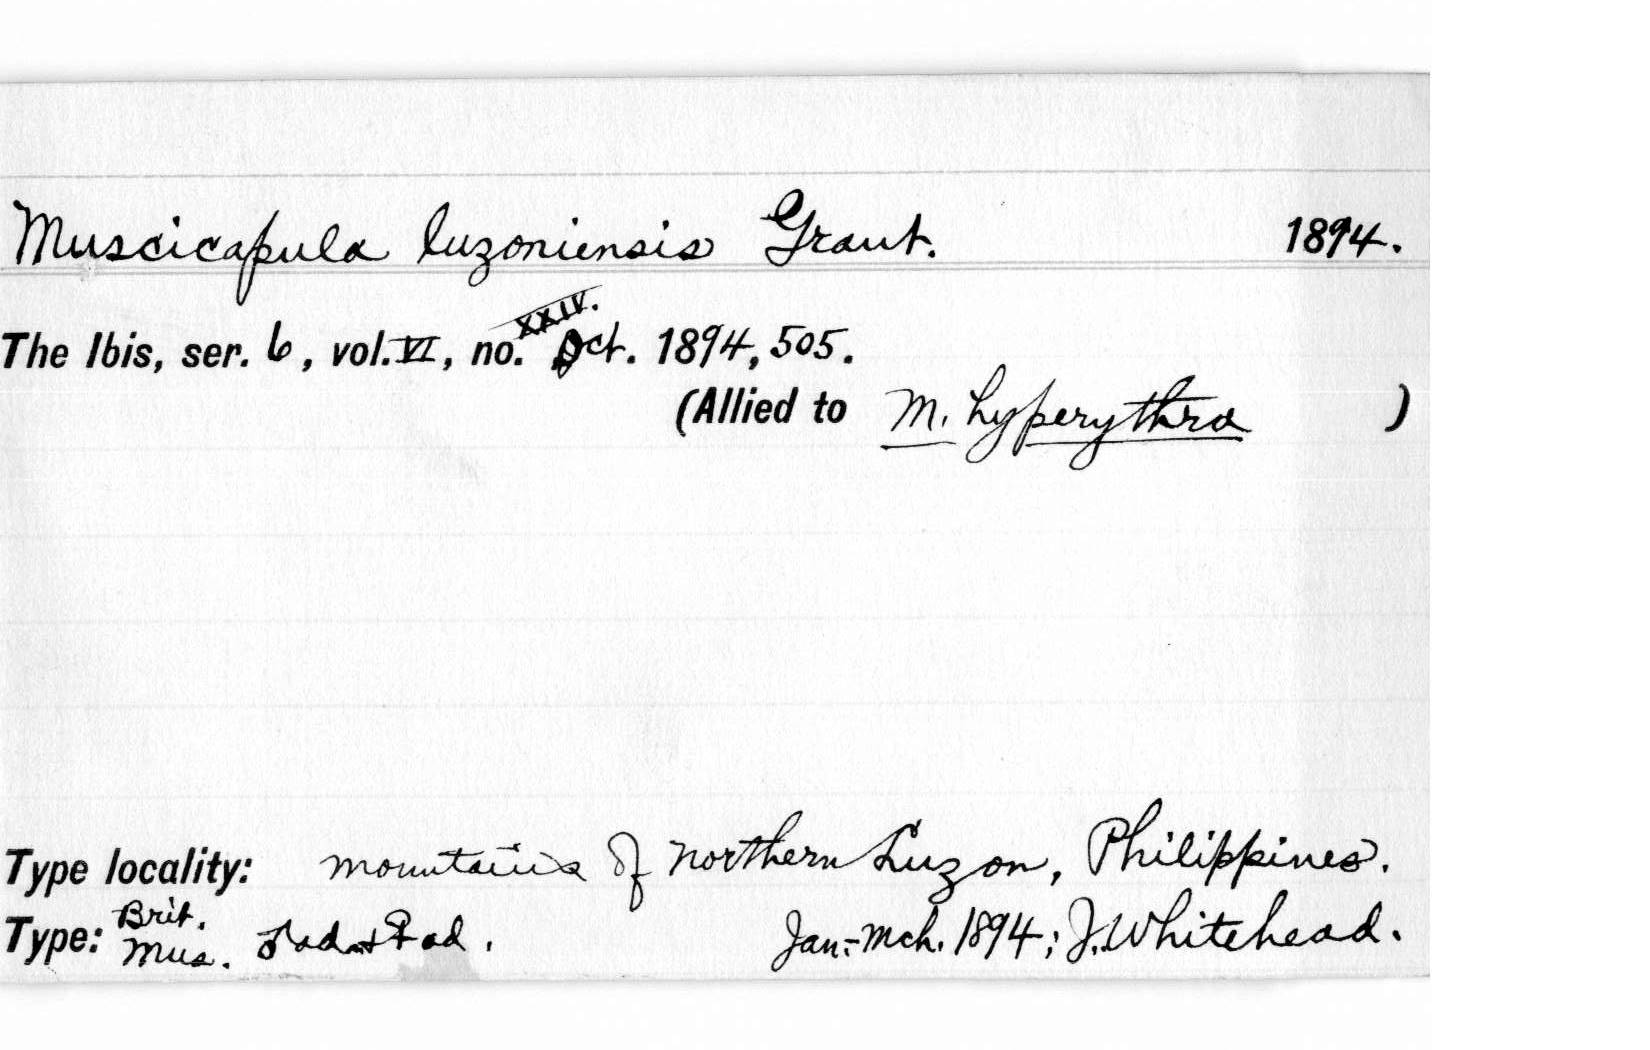 Muscicapula luzoniensis Grant. 1894.
The Ibis, ser. 6, vol. VI, no. XXIV. Oct. 1894, 505.
(Allied to M. hyperythra )
Type locality: mountains of northern Luzon, Philippines.
Type: Brit. Mus. ♂ad. + ♀ad. Jan.-Mch. 1894; J. Whitehead.